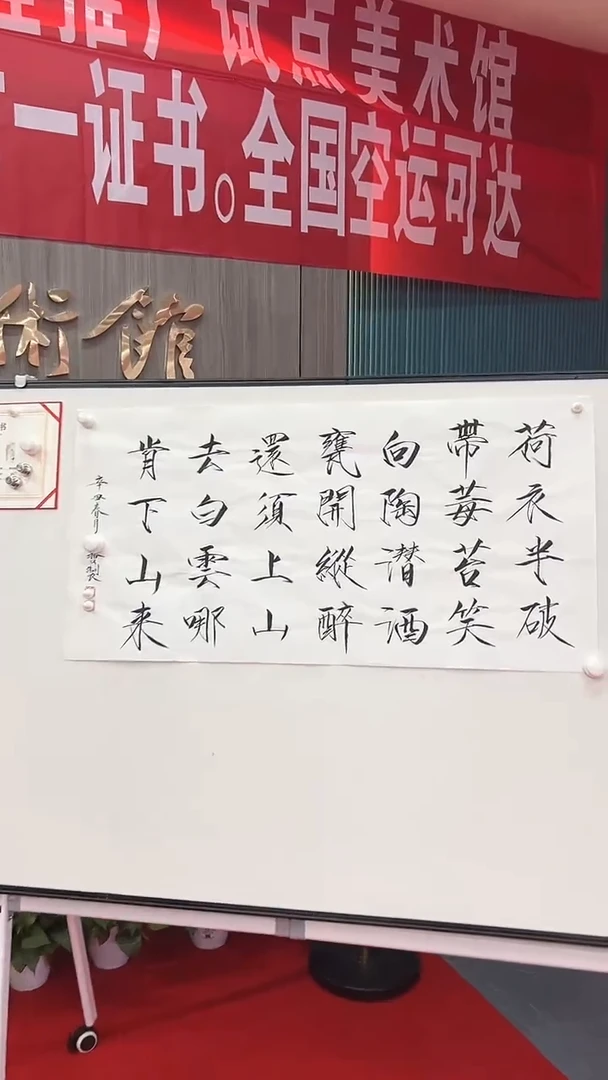 推广试点美术馆
一证书。全国空运可达
術館
荷衣半破
帶莓苔笑
向陶潜酒
甕開縱醉
還須上山
去白雲哪
肯下山来
辛丑春月